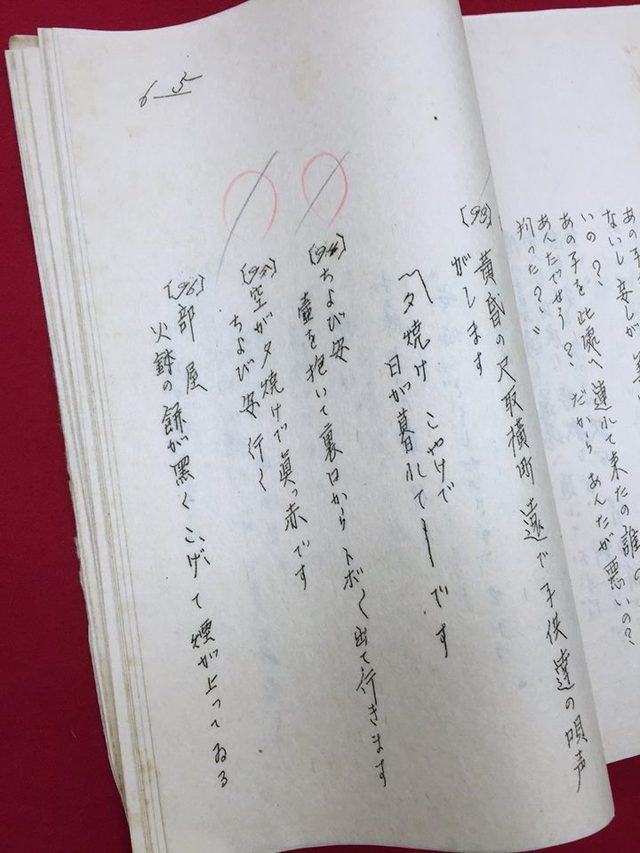 あの子
ないし 妾しが
いの?、
あの子を此處へ連れて来たの誰の
あんたでせう?、だから あんたが悪いの?
判った?、"
[93] 黄昏の尺取横町 遠で子供達の唄声
がします
〽夕焼け こやけで
日が暮れて――です
[94] ちょび安
壷を抱いて裏口から トボ〱出て行きます
[95] 空が夕焼けで眞っ赤です
ちょび安 行く
[96] 部屋
火鉢の餅が黒くこげて煙が上ってゐる
6-5